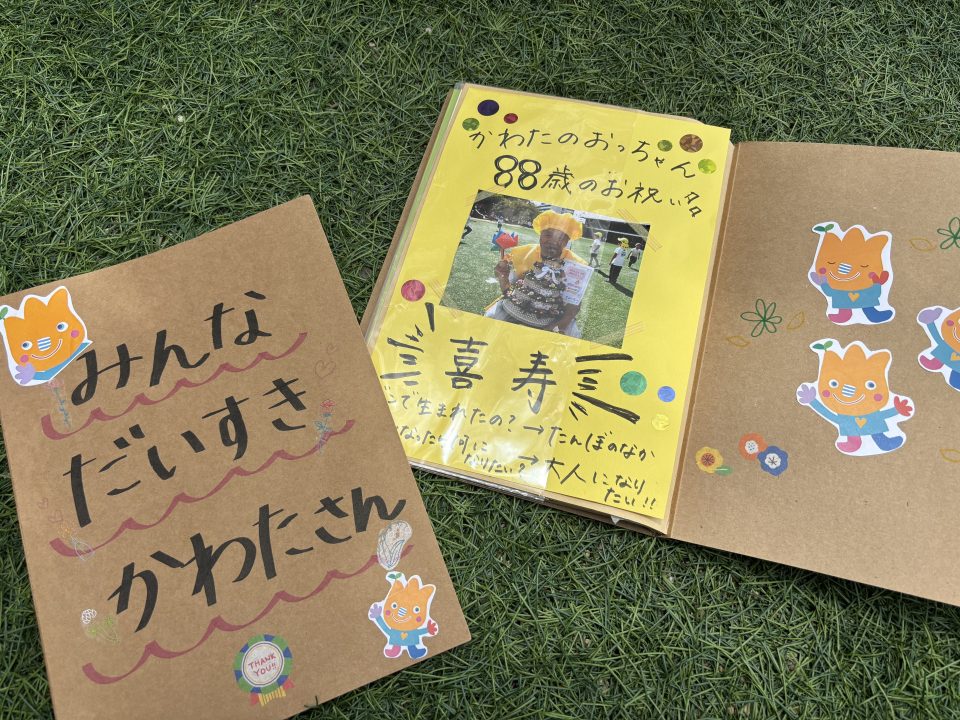 みんな
だいすき
かわたさん
THANK
YOU!!
かわたのおっちゃん
88歳のお祝い
喜寿
で生まれたの?→たんぼのなか
なったら何に
なりたい?→大人になり
たい!!